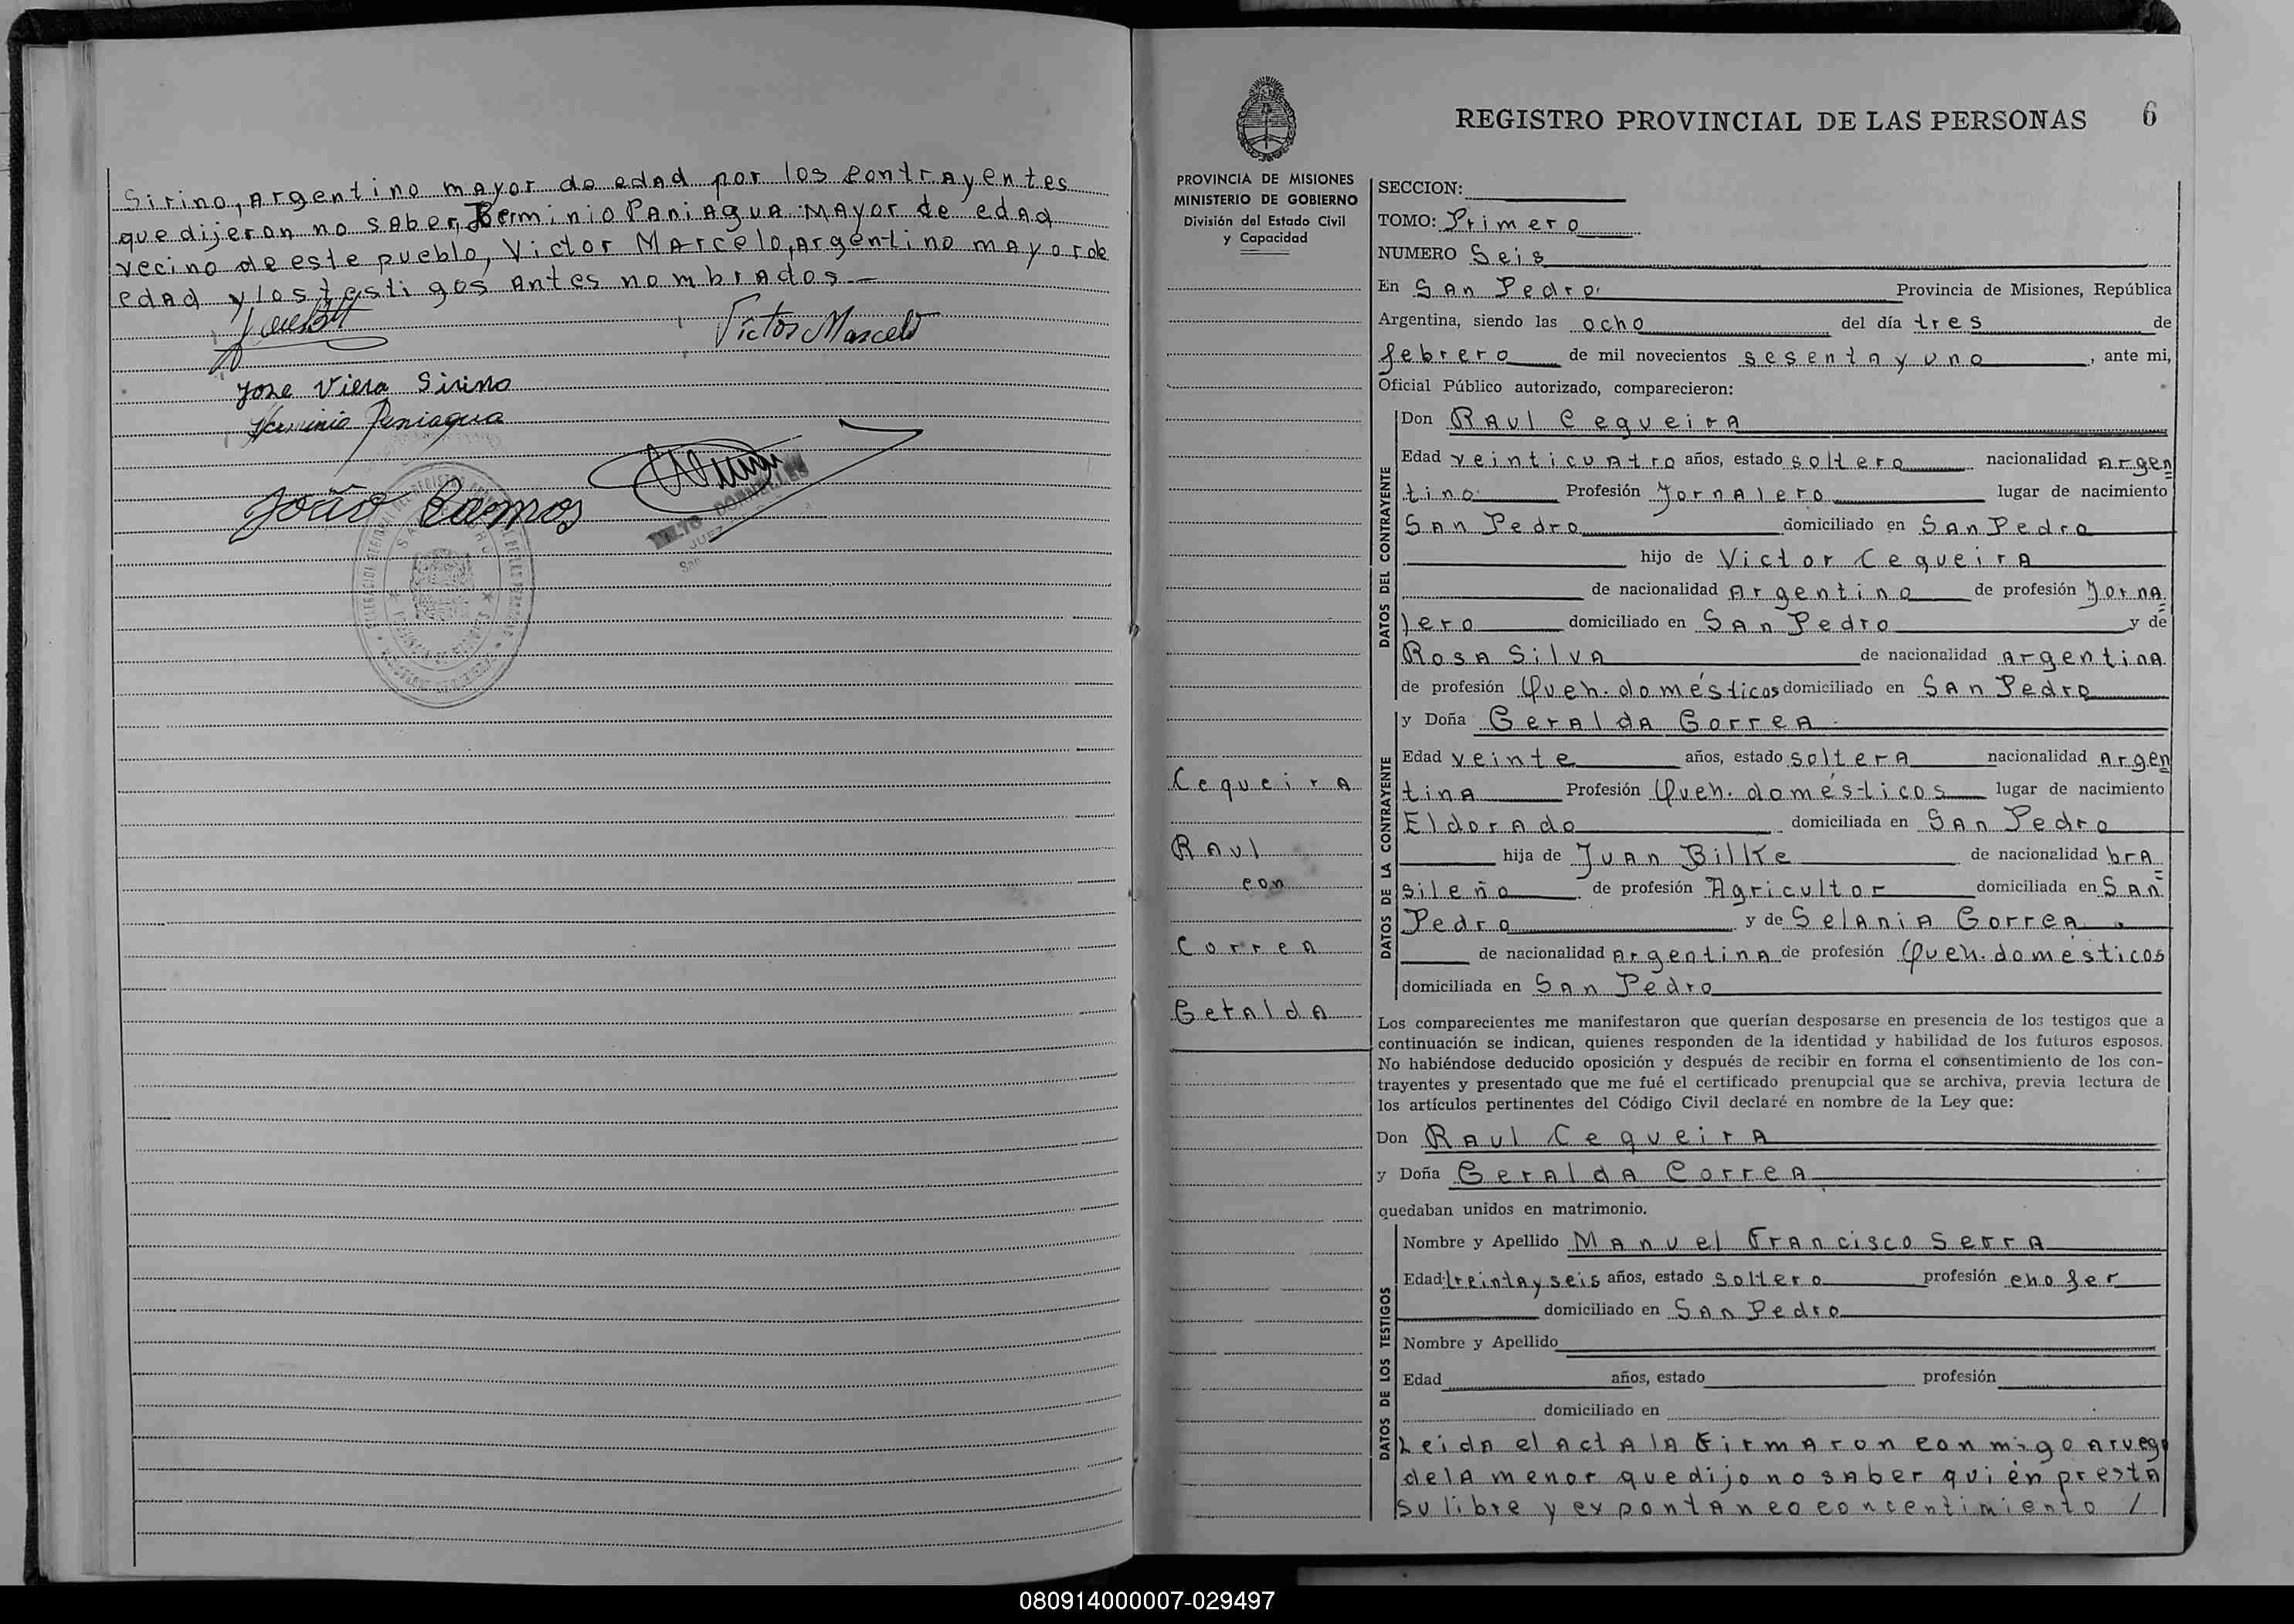 Sirino, Argentino mayor de edad por los contrayentes
que dijeron no saber, Herminio Paniagua mayor de edad
vecino de este pueblo, Victor Marcelo, Argentino mayor de
edad y los testigos antes nombrados.—
Victor Marcelo
Jose Viera Sirino
Herminio Paniagua
João Ramos
JUEZ
San
6
REGISTRO PROVINCIAL DE LAS PERSONAS
PROVINCIA DE MISIONES
MINISTERIO DE GOBIERNO
División del Estado Civil
y Capacidad
Cequeira
Raul
con
Correa
Geralda
SECCION:
TOMO: Primero
NUMERO Seis
En San Pedro Provincia de Misiones, República
Argentina, siendo las ocho del día tres de
febrero de mil novecientos sesenta y uno, ante mi,
Oficial Público autorizado, comparecieron:
DATOS DEL CONTRAYENTE
Don Raul Cequeira
Edad veinticuatro años, estado soltero nacionalidad Argen
tino Profesión Jornalero lugar de nacimiento
San Pedro domiciliado en San Pedro
hijo de Victor Cequeira
de nacionalidad Argentino de profesión Jorna=
lero domiciliado en San Pedro y de
Rosa Silva de nacionalidad argentina
de profesión Queh. domésticos domiciliado en San Pedro
DATOS DE LA CONTRAYENTE
y Doña Geralda Correa
Edad veinte años, estado soltera nacionalidad Argen=
tina Profesión Queh. domésticos lugar de nacimiento
Eldorado domiciliada en San Pedro
hija de Juan Billke de nacionalidad bra=
sileño de profesión Agricultor domiciliada en San
Pedro y de Selania Correa
de nacionalidad argentina de profesión Queh. domésticos
domiciliada en San Pedro
Los comparecientes me manifestaron que querían desposarse en presencia de los testigos que a
continuación se indican, quienes responden de la identidad y habilidad de los futuros esposos.
No habiéndose deducido oposición y después de recibir en forma el consentimiento de los con-
trayentes y presentado que me fué el certificado prenupcial que se archiva, previa lectura de
los artículos pertinentes del Código Civil declaré en nombre de la Ley que:
Don Raul Cequeira
y Doña Geralda Correa
quedaban unidos en matrimonio.
DATOS DE LOS TESTIGOS
Nombre y Apellido Manuel Francisco Serra
Edad treinta y seis años, estado soltero profesión chofer
domiciliado en San Pedro
Nombre y Apellido
Edad años, estado profesión
domiciliado en
Leida el acta la firmaron conmigo a ruego
de la menor que dijo no saber quién presta
su libre y expontaneo concentimiento /
080914000007-029497